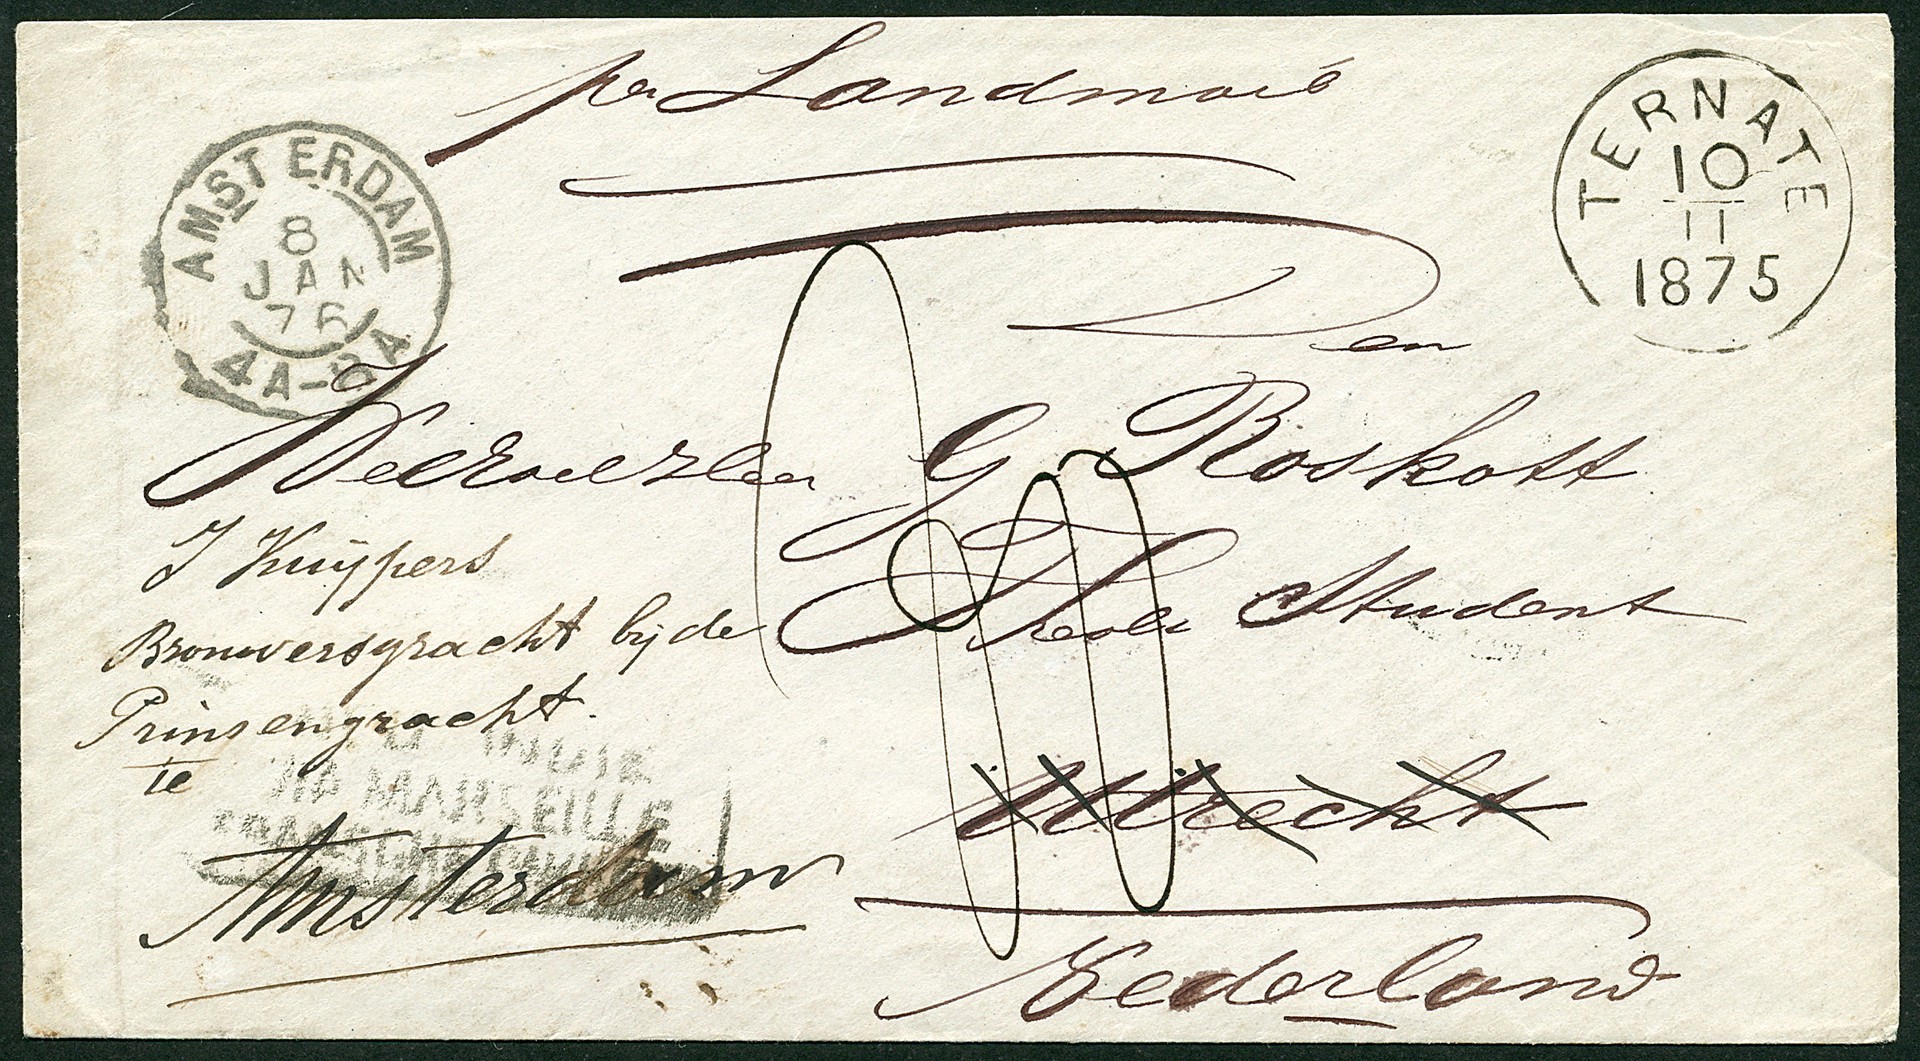 per Landmail
TERNATE
10
11
1875
AMSTERDAM
8
JAN
76
4A-8A
Den
Weledelen Heer G Roskott
Theol. Student
Utrecht
Nederland
J Kuijpers
Brouwersgracht bij de
Prinsengracht.
te
Amsterdam
INDIE
VIA MARSEILLE